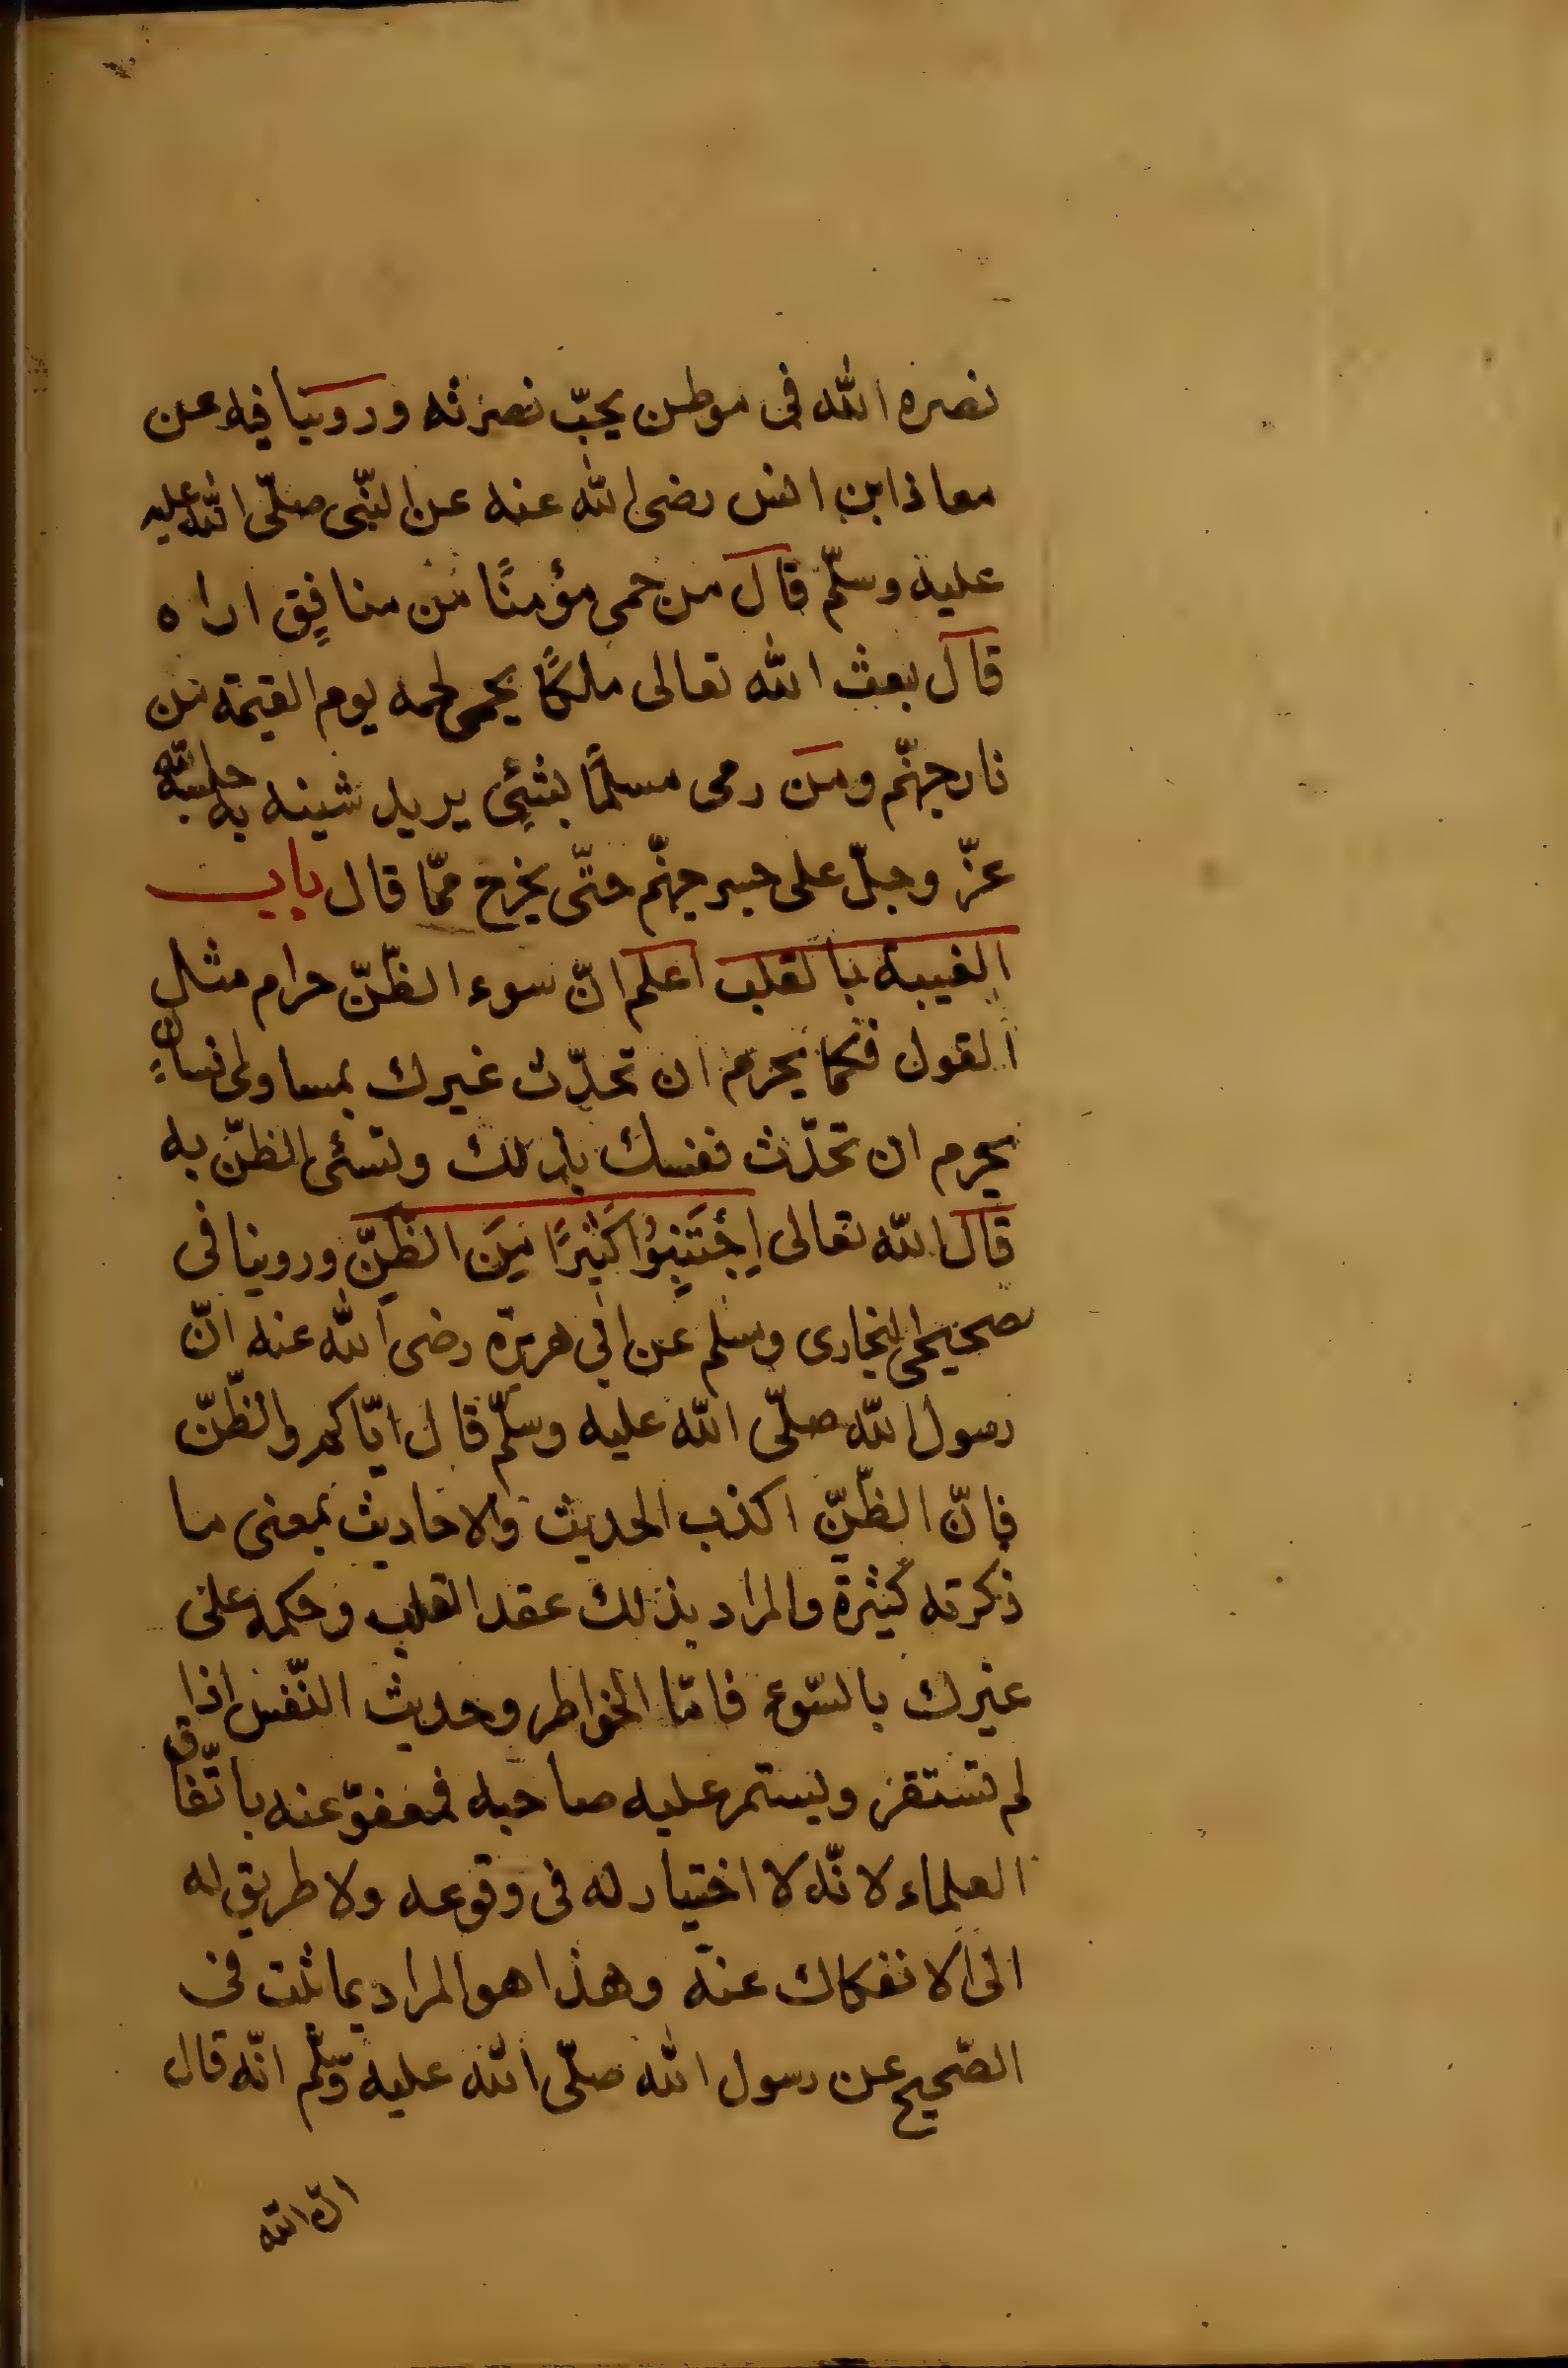 نصره الله فى موطن يحبّ نصرته وروينا فيه عن
معاذ ابن انس رضى الله عنه عن النّبى صلّى الله عليه
عليه وسلّم قال من حمى مؤمنًا من منافقٍ اراه
قال بعث الله تعالى ملكًا يحمى لحمه يوم القيمة من
نار جهنّم ومن رمى مسلمًا بشئٍ يريد شينه به حبسه الله
عزّ وجلّ على جسر جهنّم حتّى يخرج ممّا قال باب
الغيبة بالقلب اعلم انّ سوء الظّنّ حرام مثل
القول فكما يحرم ان تحدّث غيرك بمساوى انسان
يحرم ان تحدّث نفسك بذلك وتسئ الظنّ به
قال الله تعالى اِجْتَنِبُوُا كَثيرًا مِنَ الظّنِّ وروينا فى
صحيحى البخارى ومسلم عن ابى هريرة رضى الله عنه انّ
رسول الله صلّى الله عليه وسلّم قال ايّاكم والظّنّ
فانّ الظّنّ اكذب الحديث والاحاديث بمعنى ما
ذكرته كثيرة والمراد بذلك عقد القلب وحكمه على
غيرك بالسّوء فامّا الخواطر وحديث النّفس اذا
لم تستقر ويستمر عليه صاحبه فمعفوّ عنه باتّفاق
العلماء لانّه لا اختيار له فى وقوعه ولا طريق له
الى الانفكاك عنه وهذا هو المراد بما ثبت فى
الصّحيح عن رسول الله صلّى الله عليه وسّلّم انّه قال
انّ الله